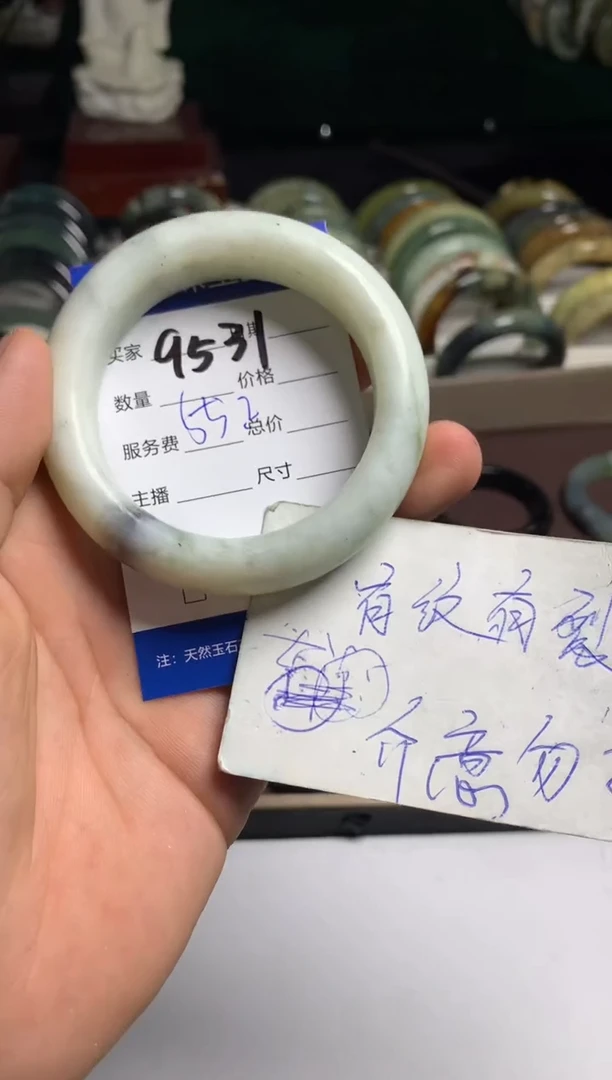 买家 9531 期
数量 价格
服务费 552 总价
主播 尺寸
注：天然玉石
有纹有裂
介高勿